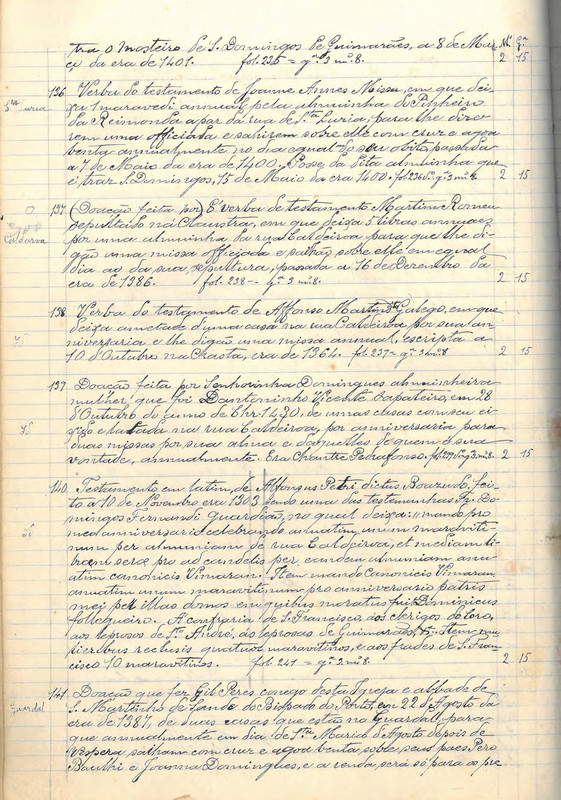 tra, o mosteiro de S. Domingos de Guimarães, a 8 de Mar-
ço da era de 1401. fol. 235 = gª 3 nº 8. 2 15
136 Verba do testamento de Joanne Annes Missa, em que dei-
xa 1 maravedi annual, pela almuinha do Pinheiro
da Reimonda a par da rua de Sta Luzia, para lhe dize-
rem uma officiada e sahirem sobre elle com cruz e agoa
benta annualmente no dia egual do seu obito, passada
a 7 de Maio da era de 1400. Posse da dita almuinha que
é traz S. Domingos, 15 de Maio da era 1400. fol. 236 gª 3 nº 8. 2 15
137 (Doação feita por) E verba do testamento Martim Romeu
sepultado na Claustra, em que deixa 5 libras annuaes
Caldeiroa por uma almuinha da rua Caldeiroa, para que lhe di-
gão uma missa officiada e saião sobre elle em egual
dia ao da sua sepultura, passada a 16 de Dezembro da
era de 1386. fol. 238 - gª 3 nº 8. 2 15
138 Verba do testamento de Affonso Martins Galego, em que
deixa ametade d'uma casa na rua Caldeiroa, por sua an-
niversaria e lhe digão uma missa annual, escripta a
10 d'Outubro na Chasta, era de 1364. fol. 237 = gª 3 nº 8. 2 15
137 Doação feita por Senhorinha Domingues almuinheira
mulher, que foi Dantoninho Vicente sapateiro, em 28
d'Outubro do anno de Chr. 1430, de umas casas com seu ei-
xido e na rua Caldeiroa, por anniversaria para
duas missas por sua alma e daquelles de quem é sua
vontade, annualmente. Era Chantre Pedrafonso. gª 3 nº 8. 2 15
140 Testamento em latim, de Alfonsus Petri dictus Bourudo, fei-
to a 10 de Novembro era 1303 sendo uma das testemunhas Fr. Do-
mingos Fernandi Guardião, no qual deixa: mando pro
meo anniversario celebrando annuatim unum maraviti-
num per almuiniam de rua Caldeiroa, et mediam li-
bram cerae pro ad candelis per eandem almuniam annu-
atim canonicis Vimaran. Item mando Canonicis Vimaran.
annuatim unum maravitinum pro anniversario patris
mei per illas domos em quibus moratus fuit Dominicus
follequeiro. A confraria de S. Francisco, aos clerigos do coro,
aos leprosos de Sto André, ás leprosas de Guimarães, Item mu-
lieribus reclusis quatuor maravitinos, e aos frades de S. Fran-
cisco 10 maravitinos. fol. 241 = gª 3 nº 8. 2 15
141 Doação que fez Gil Peres conego desta Igreja e abbade de
Guardal S. Martinho de Sande do Bispado do Porto, em 22 d'Agosto da
era de 1387, de suas casas que estão no Guardal, para
que annualmente em dia de Sta Maria d'Agosto depois de
vespera saiham com cruz e agoa benta, sobre seus paes Pero
e Joanna Domingues, e a renda, será só para os pre